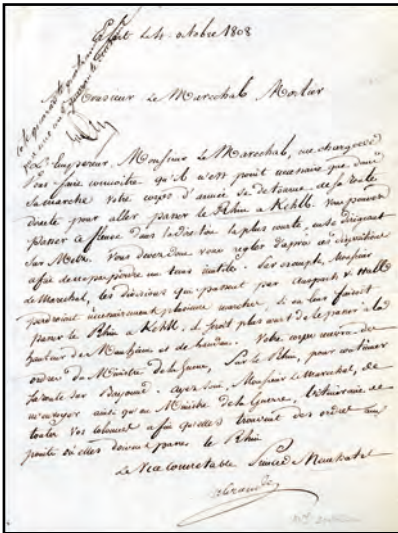 Erfurt le 4 octobre 1808
Monsieur Le Marechal Mortier
L'Empereur, Monsieur Le Marechal, me charge de
Vous faire connoitre qu'il n'est point necessaire que dans
sa marche Votre corps d'armée se detourne de sa route
directe pour aller passer le Rhin a Kehll. Vous pouvez
passer ce fleuve dans la direction la plus courte, en se dirigeant
sur Metz. Vous devez donc vous regler d'après ces dispositions
afin de ne pas perdre un tems inutile. Par exemple, Monsieur
Le Marechal, les divisions qui passent par et Hall
perdroient necessairement plusieurs marches si on leur faisoit
passer le Rhin a Kehll. il seroit plus court de le passer a la
hauteur de Manheim et de Landau. Votre corps recevra des
ordres du Ministre de la Guerre, sur le Rhin, pour continuer
sa route sur Bayonne. ayez soin, Monsieur Le Marechal, de
m'envoyer ainsi qu'au Ministre de la Guerre, l'itineraire de
toutes Vos colonnes afin qu'elles trouvent des ordres aux
points où elles doivent passer le Rhin
Le Vice Connetable Prince de Neuchatel
Alexandre